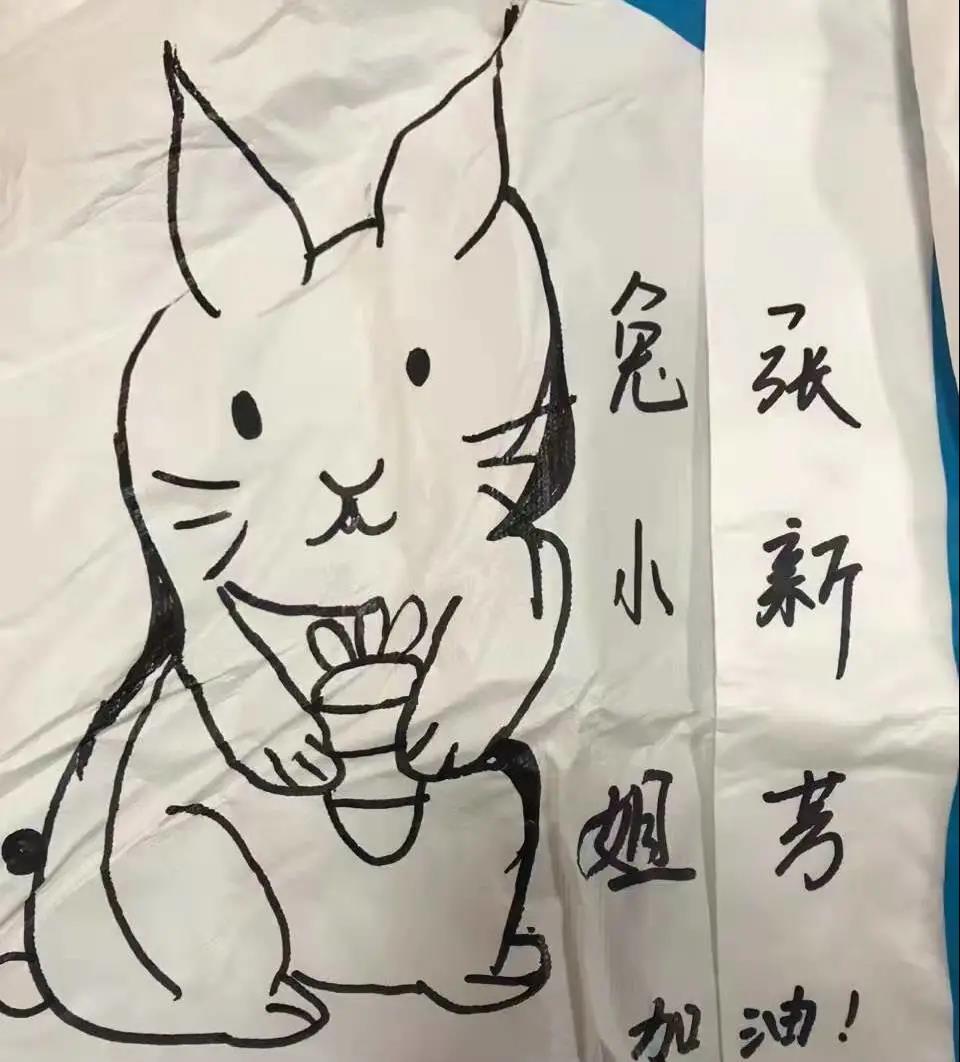 张新芳
兔小姐
加油!